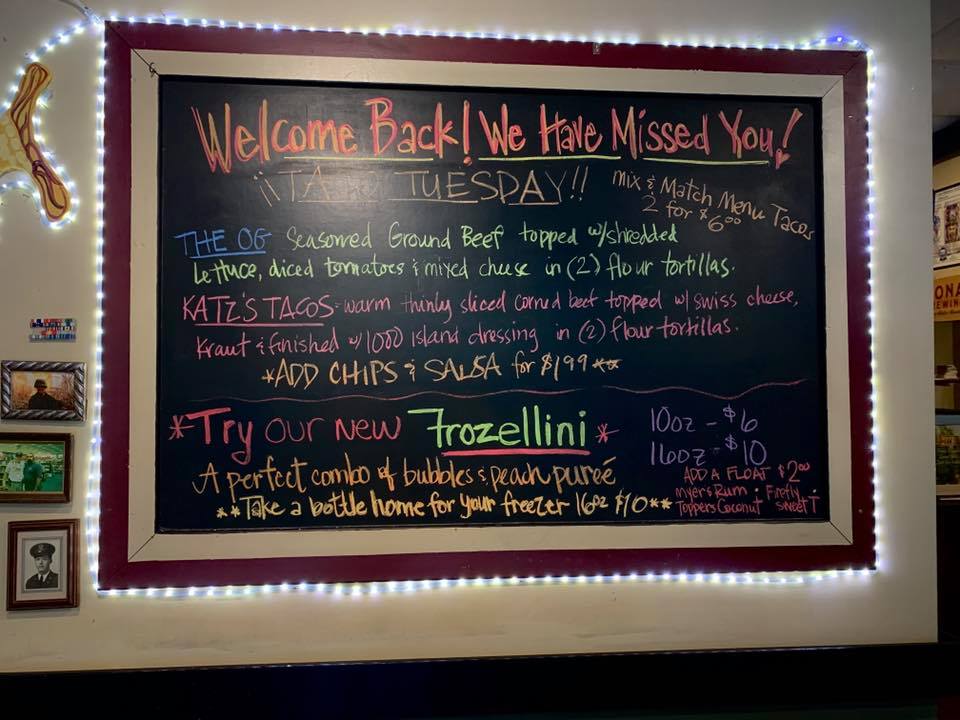 Welcome Back! We Have Missed You!
¡¡TACO TUESDAY!!
Mix & Match Menu Tacos
2 for $6.00
THE OG Seasoned Ground Beef topped w/shredded
Lettuce, diced tomatoes & mixed cheese in (2) flour tortillas.
KATZ'S TACOS- warm thinly sliced corned beef topped w/ swiss cheese,
Kraut & finished w/ 1000 Island dressing in (2) flour tortillas.
*ADD CHIPS & SALSA for $1.99 **
*Try our new Frozellini*
10oz - $6
16oz - $10
A perfect combo of bubbles & peach pureé
**Take a bottle home for your freezer 16oz $10**
ADD A FLOAT $2.00
Myers Rum · Firefly
Toppers Coconut · Sweet T